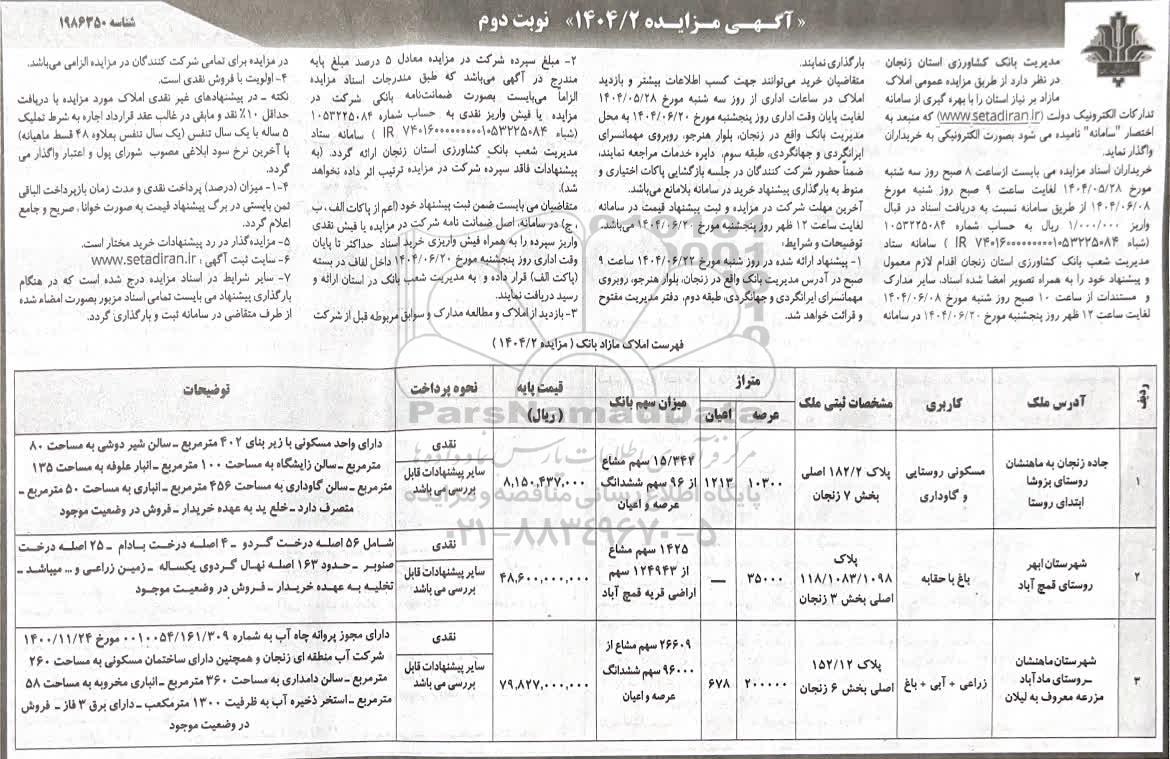 « آگهـی مـزایـده ۱۴۰۴/۲ » نوبت دوم
شناسه ۱۹۸۶۳۵۰
مدیریت بانک کشاورزی استان زنجان
در نظر دارد از طریق مزایده عمومی املاک
مازاد بر نیاز استان را با بهره گیری از سامانه
تدارکات الکترونیک دولت (www.setadiran.ir) که منبعد به
اختصار "سامانه" نامیده می شود بصورت الکترونیکی به خریداران
واگذار نماید.
خریداران اسناد مزایده می بایست ازساعت ۸ صبح روز سه شنبه
مورخ ۱۴۰۴/۰۵/۲۸ لغایت ساعت ۹ صبح روز شنبه مورخ
۱۴۰۴/۰۶/۰۸ از طریق سامانه نسبت به دریافت اسناد در قبال
واریز ۱/۰۰۰/۰۰۰ ریال به حساب شماره ۱۰۵۳۲۲۵۰۸۴
(شباء IR ۷۴۰۱۶۰۰۰۰۰۰۰۰۰۰۱۰۵۳۲۲۵۰۸۴ ) سامانه ستاد
مدیریت شعب بانک کشاورزی استان زنجان اقدام لازم معمول
و پیشنهاد خود را به همراه تصویر امضا شده اسناد، سایر مدارک
و مستندات از ساعت ۱۰ صبح روز شنبه مورخ ۱۴۰۴/۰۶/۰۸
لغایت ساعت ۱۲ ظهر روز پنجشنبه مورخ ۱۴۰۴/۰۶/۲۰ در سامانه
بارگذاری نمایند.
متقاضیان خرید می‌توانند جهت کسب اطلاعات بیشتر و بازدید
املاک در ساعات اداری از روز سه شنبه مورخ ۱۴۰۴/۰۵/۲۸
لغایت پایان وقت اداری روز پنجشنبه مورخ ۱۴۰۴/۰۶/۲۰ به محل
مدیریت بانک واقع در زنجان، بلوار هنرجو، روبروی مهمانسرای
ایرانگردی و جهانگردی، طبقه سوم، دایره خدمات مراجعه نمایند،
ضمناً حضور شرکت کنندگان در جلسه بازگشایی پاکات اختیاری و
منوط به بارگذاری پیشنهاد خرید در سامانه بلامانع می‌باشد.
آخرین مهلت شرکت در مزایده و ثبت پیشنهاد قیمت در سامانه
لغایت ساعت ۱۲ ظهر روز پنجشنبه مورخ ۱۴۰۴/۰۶/۲۰ می‌باشد.
توضیحات و شرایط:
۱- پیشنهاد ارائه شده در روز شنبه مورخ ۱۴۰۴/۰۶/۲۲ ساعت ۹
صبح در آدرس مدیریت بانک واقع در زنجان، بلوار هنرجو، روبروی
مهمانسرای ایرانگردی و جهانگردی، طبقه دوم، دفتر مدیریت مفتوح
و قرائت خواهد شد.
۲- مبلغ سپرده شرکت در مزایده معادل ۵ درصد مبلغ پایه
مندرج در آگهی می‌باشد که طبق مندرجات اسناد مزایده
الزاماً می‌بایست بصورت ضمانت‌نامه بانکی شرکت در
مزایده یا فیش واریز نقدی به حساب شماره ۱۰۵۳۲۲۵۰۸۴
(شباء IR ۷۴۰۱۶۰۰۰۰۰۰۰۰۰۰۱۰۵۳۲۲۵۰۸۴ ) سامانه ستاد
مدیریت شعب بانک کشاورزی استان زنجان ارائه گردد. (به
پیشنهادات فاقد سپرده شرکت در مزایده ترتیب اثر داده نخواهد
شد).
متقاضیان می بایست ضمن ثبت پیشنهاد خود (اعم از پاکات الف، ب
، ج) در سامانه، اصل ضمانت نامه شرکت در مزایده یا فیش نقدی
واریز سپرده را به همراه فیش واریزی خرید اسناد حداکثر تا پایان
وقت اداری روز پنجشنبه مورخ ۱۴۰۴/۰۶/۲۰ داخل لفاف در بسته
(پاکت الف) قرار داده و به مدیریت شعب بانک در استان ارائه و
رسید دریافت نمایند.
۳- بازدید از املاک و مطالعه مدارک و سوابق مربوطه قبل از شرکت
در مزایده برای تمامی شرکت کنندگان در مزایده الزامی می‌باشد.
۴- اولویت با فروش نقدی است.
نکته - در پیشنهادهای غیر نقدی املاک مورد مزایده با دریافت
حداقل ۱۰٪ نقد و مابقی در غالب عقد قرارداد اجاره به شرط تملیک
۵ ساله با یک سال تنفس (یک سال تنفس بعلاوه ۴۸ قسط ماهیانه)
با آخرین نرخ سود ابلاغی مصوب شورای پول و اعتبار واگذار می
گردد.
۴-۱- میزان (درصد) پرداخت نقدی و مدت زمان بازپرداخت الباقی
ثمن بایستی در برگ پیشنهاد قیمت به صورت خوانا، صریح و جامع
اعلام گردد.
۵- مزایده‌گذار در رد پیشنهادات خرید مختار است.
۶- سایت ثبت آگهی : www.setadiran.ir
۷- سایر شرایط در اسناد مزایده درج شده است که در هنگام
بارگذاری پیشنهاد می بایست تمامی اسناد مزبور بصورت امضاء شده
از طرف متقاضی در سامانه ثبت و بارگذاری گردد.
فهرست املاک مازاد بانک ( مزایده ۱۴۰۴/۲ )
ردیف | آدرس ملک | کاربری | مشخصات ثبتی ملک | متراژ عرصه | اعیان | میزان سهم بانک | قیمت پایه ( ریال) | نحوه پرداخت | توضیحات
۱
جاده زنجان به ماهنشان
روستای بزوشا
ابتدای روستا
مسکونی روستایی
و گاوداری
پلاک ۱۸۲/۲ اصلی
بخش ۷ زنجان
۱۰۳۰۰
۱۲۱۳
۱۵/۳۴۲ سهم مشاع
از ۹۶ سهم ششدانگ
عرصه و اعیان
۸,۱۵۰,۴۳۷,۰۰۰
نقدی
سایر پیشنهادات قابل
بررسی می باشد
دارای واحد مسکونی با زیر بنای ۴۰۲ مترمربع - سالن شیر دوشی به مساحت ۸۰
مترمربع - سالن زایشگاه به مساحت ۱۰۰ مترمربع - انبار علوفه به مساحت ۱۳۵
مترمربع - سالن گاوداری به مساحت ۴۵۶ مترمربع - انباری به مساحت ۵۰ مترمربع -
متصرف دارد - خلع ید به عهده خریدار - فروش در وضعیت موجود
۲
شهرستان ابهر
روستای قمچ آباد
باغ با حقابه
پلاک
۱۱۸/۱۰۸۳/۱۰۹۸
اصلی بخش ۳ زنجان
۳۵۰۰۰
—
۱۴۲۵ سهم مشاع
از ۱۲۴۹۴۳ سهم
اراضی قریه قمچ آباد
۴۸,۶۰۰,۰۰۰,۰۰۰
نقدی
سایر پیشنهادات قابل
بررسی می باشد
شـامل ۵۶ اصله درخت گردو - ۴ اصله درخـت بـادام - ۲۵ اصله درخت
صنوبر - حدود ۱۶۳ اصله نهال گردوی یکساله - زمین زراعی و ... میباشد -
تخلیه به عهده خریـدار - فروش در وضعیت موجود
۳
شهرستان ماهنشان
- روستای مادآباد
مزرعه معروف به لیلان
زراعی + آبی + باغ
پلاک ۱۵۲/۱۲
اصلی بخش ۶ زنجان
۲۰۰۰۰۰
۶۷۸
۲۶۶۰۹ سهم مشاع از
۹۶۰۰۰ سهم ششدانگ
عرصه و اعیان
۷۹,۸۲۷,۰۰۰,۰۰۰
نقدی
سایر پیشنهادات قابل
بررسی می باشد
دارای مجوز پروانه چاه آب به شماره ۰۰۱۰۰۵۴/۱۶۱/۳۰۹ مورخ ۱۴۰۰/۱۱/۲۴
شرکت آب منطقه ای زنجان و همچنین دارای ساختمان مسکونی به مساحت ۲۶۰
مترمربع - سالن دامداری به مساحت ۳۶۰ مترمربع - انباری مخروبه به مساحت ۵۸
مترمربع - استخر ذخیره آب به ظرفیت ۱۳۰۰ مترمکعب - دارای برق ۳ فاز - فروش
در وضعیت موجود
ParsNamadData
مرکز فرآوری اطلاعات پارس نماد داده ها
پایگاه اطلاع رسانی مناقصه و مزایده
۰۲۱-۸۸۳۴۹۶۷۰-۵